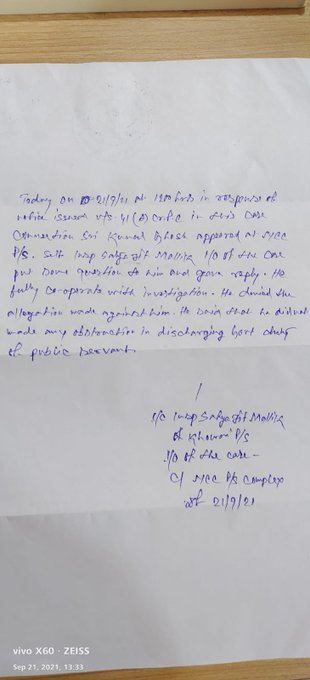 Today on 21/9/21 at 1300 hrs in response of
notice issued u/s 41(A) CrPC in this case
connection Sri Kunal Ghosh appeared at NCC
P/S. Sub Insp Satyajit Mallik I/O of the case
put some question to him and gave reply. He
fully co-operate with investigation. He denied the
allegation made against him. He said that he did not
made any obstruction in discharging Govt duty
of public servant.
S/I Insp Satyajit Mallik
of Khowai P/S
I/O of the case -
C/ NCC P/S Complex
dt 21/9/21
vivo X60 · ZEISS
Sep 21, 2021, 13:33